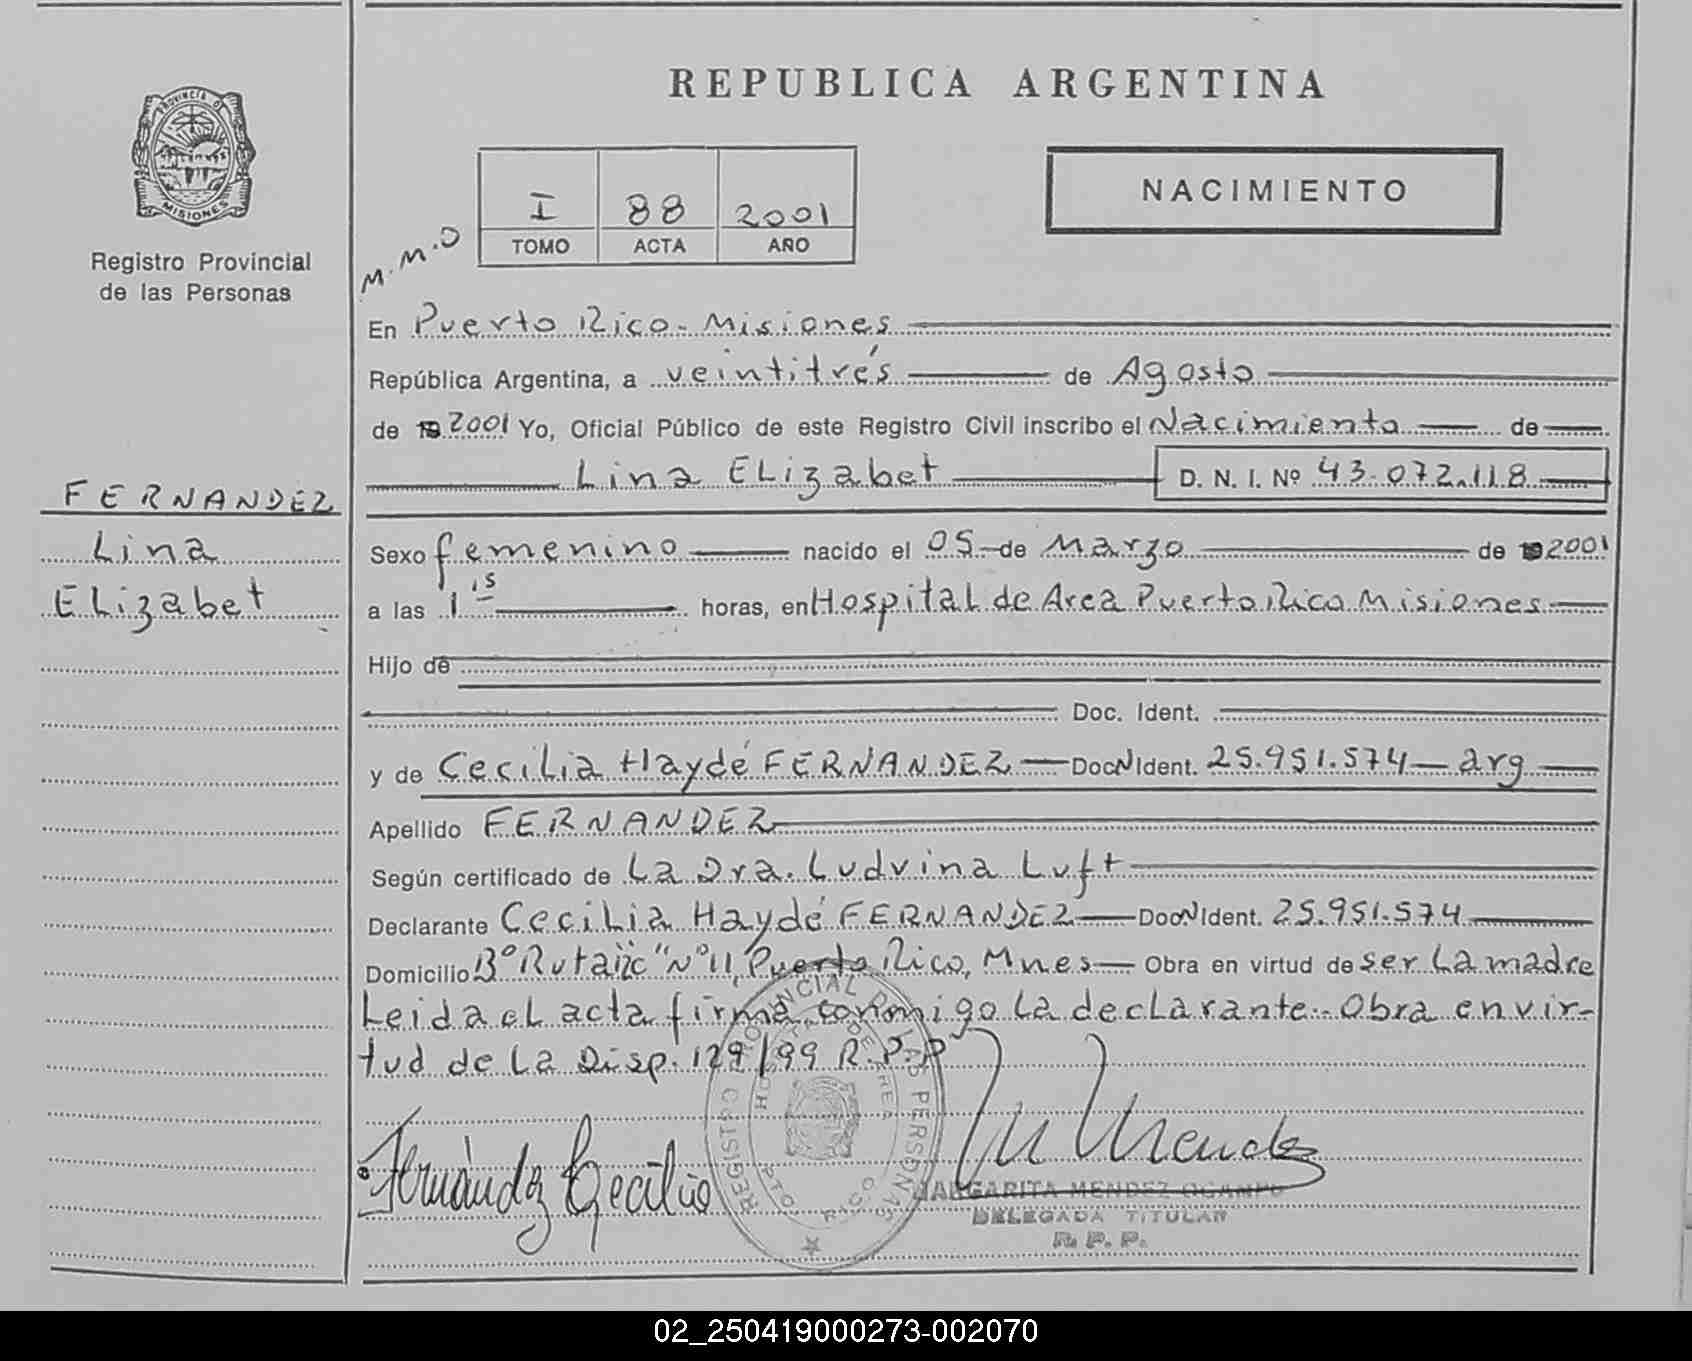 REPUBLICA ARGENTINA
PROVINCIA D
MISIONES
Registro Provincial
de las Personas
NACIMIENTO
I 88 2001
TOMO ACTA AÑO
M.M.O
En Puerto Rico - Misiones
República Argentina, a veintitrés de Agosto
de 19 2001 Yo, Oficial Público de este Registro Civil inscribo el Nacimiento de
Lina ELizabet D. N. I. Nº 43.072.118
FERNANDEZ
Lina
ELizabet
Sexo femenino nacido el 05 de Marzo de 19 2001
a las 1 15 horas, en Hospital de Area Puerto Rico Misiones
Hijo de
Doc. Ident.
y de Cecilia Haydé FERNANDEZ Doc N Ident. 25.951.574 arg
Apellido FERNANDEZ
Según certificado de La Dra. Ludvina Luft
Declarante Cecilia Haydé FERNANDEZ Doc N Ident. 25.951.574
Domicilio Bº Ruta "Nº 11, Puerto Rico, Mnes Obra en virtud de ser La madre
Leida eL acta firma conmigo La declarante.- Obra en vir-
tud de La Disp. 129/99 R.P.P
REGISTRO PROVINCIAL DE LAS PERSONAS
HOSPITAL DE AREA
PTO RICO
Fernández Cecilia
M Mendez
MARGARITA MENDEZ OCAMPO
DELEGADA TITULAR
R. P. P.
02_250419000273-002070